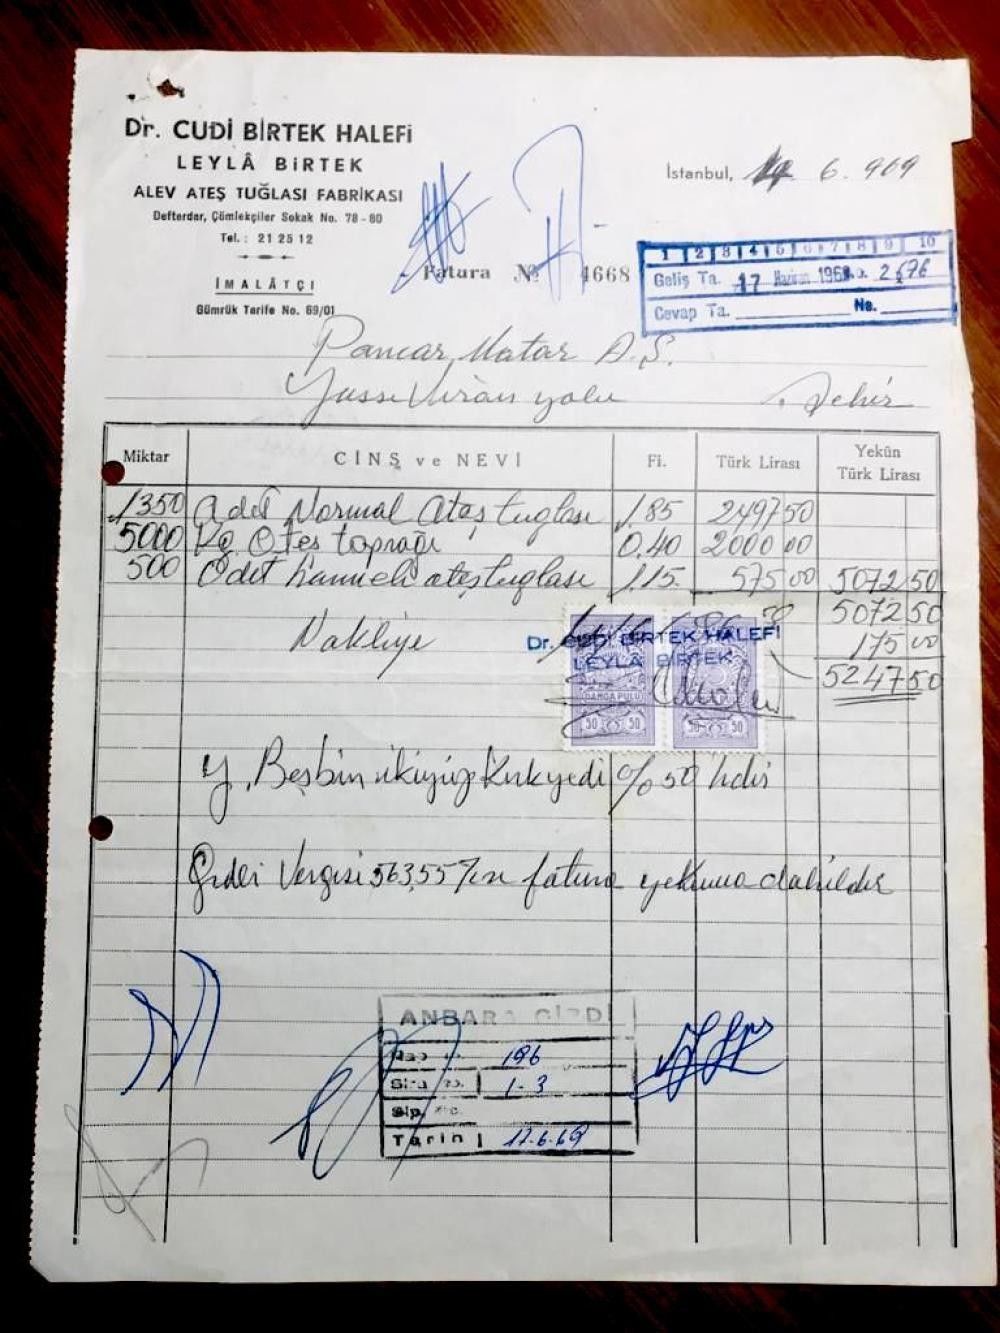 Dr. CUDİ BİRTEK HALEFİ
LEYLÂ BİRTEK
ALEV ATEŞ TUĞLASI FABRİKASI
Defterdar, Çömlekçiler Sokak No. 78 - 80
Tel.: 21 25 12
İMALÂTÇI
Gümrük Tarife No. 69/01
İstanbul, 6. 969
Fatura № 4668
1 2 3 4 5 6 7 8 9 10
Geliş Ta. 17 Haziran 1969 No. 2676
Cevap Ta. No.
Pancar Motor A.Ş.
yolu Şehir
Miktar CİNS ve NEVİ Fi. Türk Lirası Yekûn Türk Lirası
1350 Adet Normal Ateş tuğlası 1.85 2497 50
5000 Kg Ateş toprağı 0.40 2000 00
500 Adet ateş tuğlası 1.15 575 00 5072 50
5072 50
Nakliye 175 00
5247 50
Dr. CUDİ BİRTEK HALEFİ
LEYLÂ BİRTEK
DAMGA PULU
50 50 50 50
Y. Beşbin ikiyüz Kırkyedi %50 lidir
Gider Vergisi 563,55 fatura yekununa dahildir
ANBARA GİRDİ
196
Sıra No. 1-3
Sip.
Tarih 17.6.69